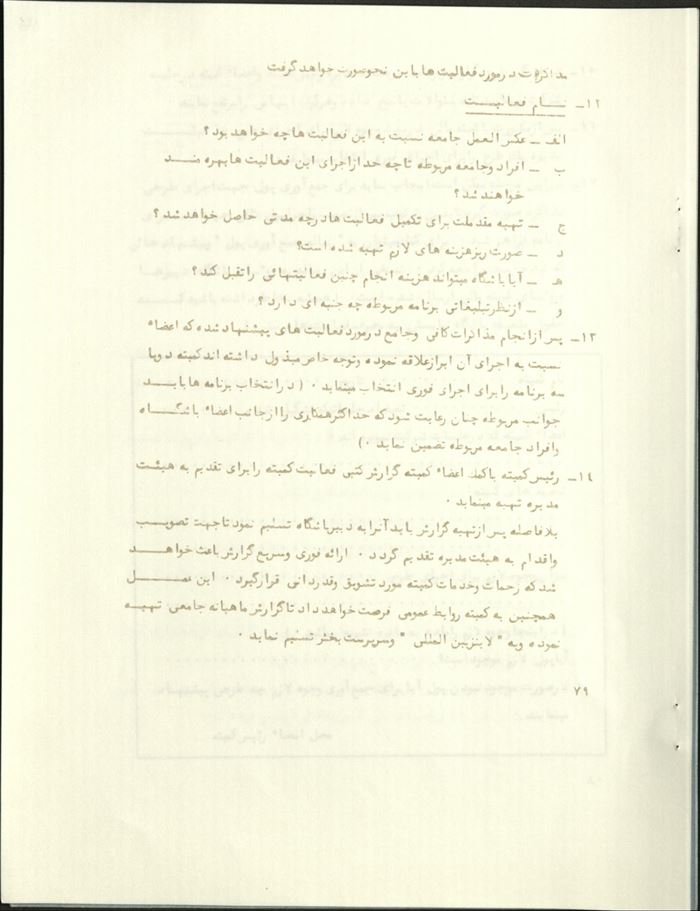 مذاکرات درمورد فعالیت ها باین نحوصورت خواهد گرفت
۱۲ـ نــام فعالیــت
الف ـ عکس العمل جامعه نسبت به این فعالیت ها چه خواهد بود ؟
ب ـ افراد وجامعه مربوطه تاچه حد ازاجرای این فعالیت ها بهره منــد
خواهند شد ؟
ج ـ تهیه مقدمات برای تکمیل فعالیت ها درچه مدتی حاصل خواهد شد ؟
د ـ صورت ریزهزینه های لازم تهیه شده است؟
هـ ـ آیا باشگاه میتواند هزینه انجام چنین فعالیتهائی راتقبل کند ؟
و ـ ازنظرتبلیغاتی برنامه مربوطه چه جنبه ای دارد ؟
۱۳ـ پس ازانجام مذاکرات کافی وجامع درمورد فعالیت های پیشنهاد شده که اعضاء
نسبت به اجرای آن ابرازعلاقه نموده وتوجه خاص مبذول داشته اند کمیته دویا
سه برنامه رابرای اجرای فوری انتخاب مینماید ۰ ( درانتخاب برنامه ها بایــد
جوانب مربوطه چنان رعایت شود که حداکثرهمکاری راازجانب اعضاء باشگــاه
وافراد جامعه مربوطه تضمین نماید ۰)
۱۴ـ رئیس کمیته باکمک اعضاء کمیته گزارش کتبی فعالیت کمیته رابرای تقدیم به هیئت
مدیره تهیه مینماید ۰
بلافاصله پس ازتهیه گزارش باید آنرابه دبیرباشگاه تسلیم نمود تاجهت تصویــب
واقدام به هیئت مدیره تقدیم گردد ۰ ارائه فوری وسریع گزارش باعث خواهــد
شد که زحمات وخدمات کمیته مورد تشویق وقدردانی قرارگیرد ۰ این عمــل
همچنین به کمیته روابط عمومی فرصت خواهد داد تاگزارش ماهیانه جامعی تهیــه
نموده وبه " لاینزبین المللی " وسرپرست بخش تسلیم نماید ۰
۷۹